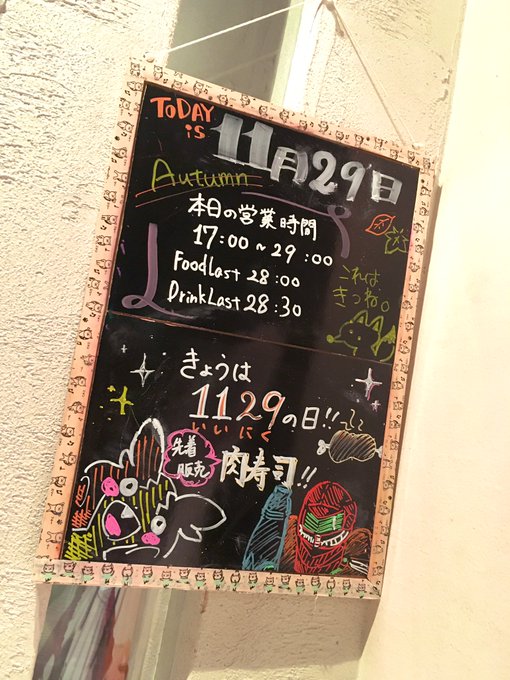 TODAY is
11月29日
Autumn
本日の営業時間
17:00~29:00
FoodLast 28:00
DrinkLast 28:30
これは
きつね。
きょうは
1129の日!!
いいにく
先着
販売
肉寿司!!